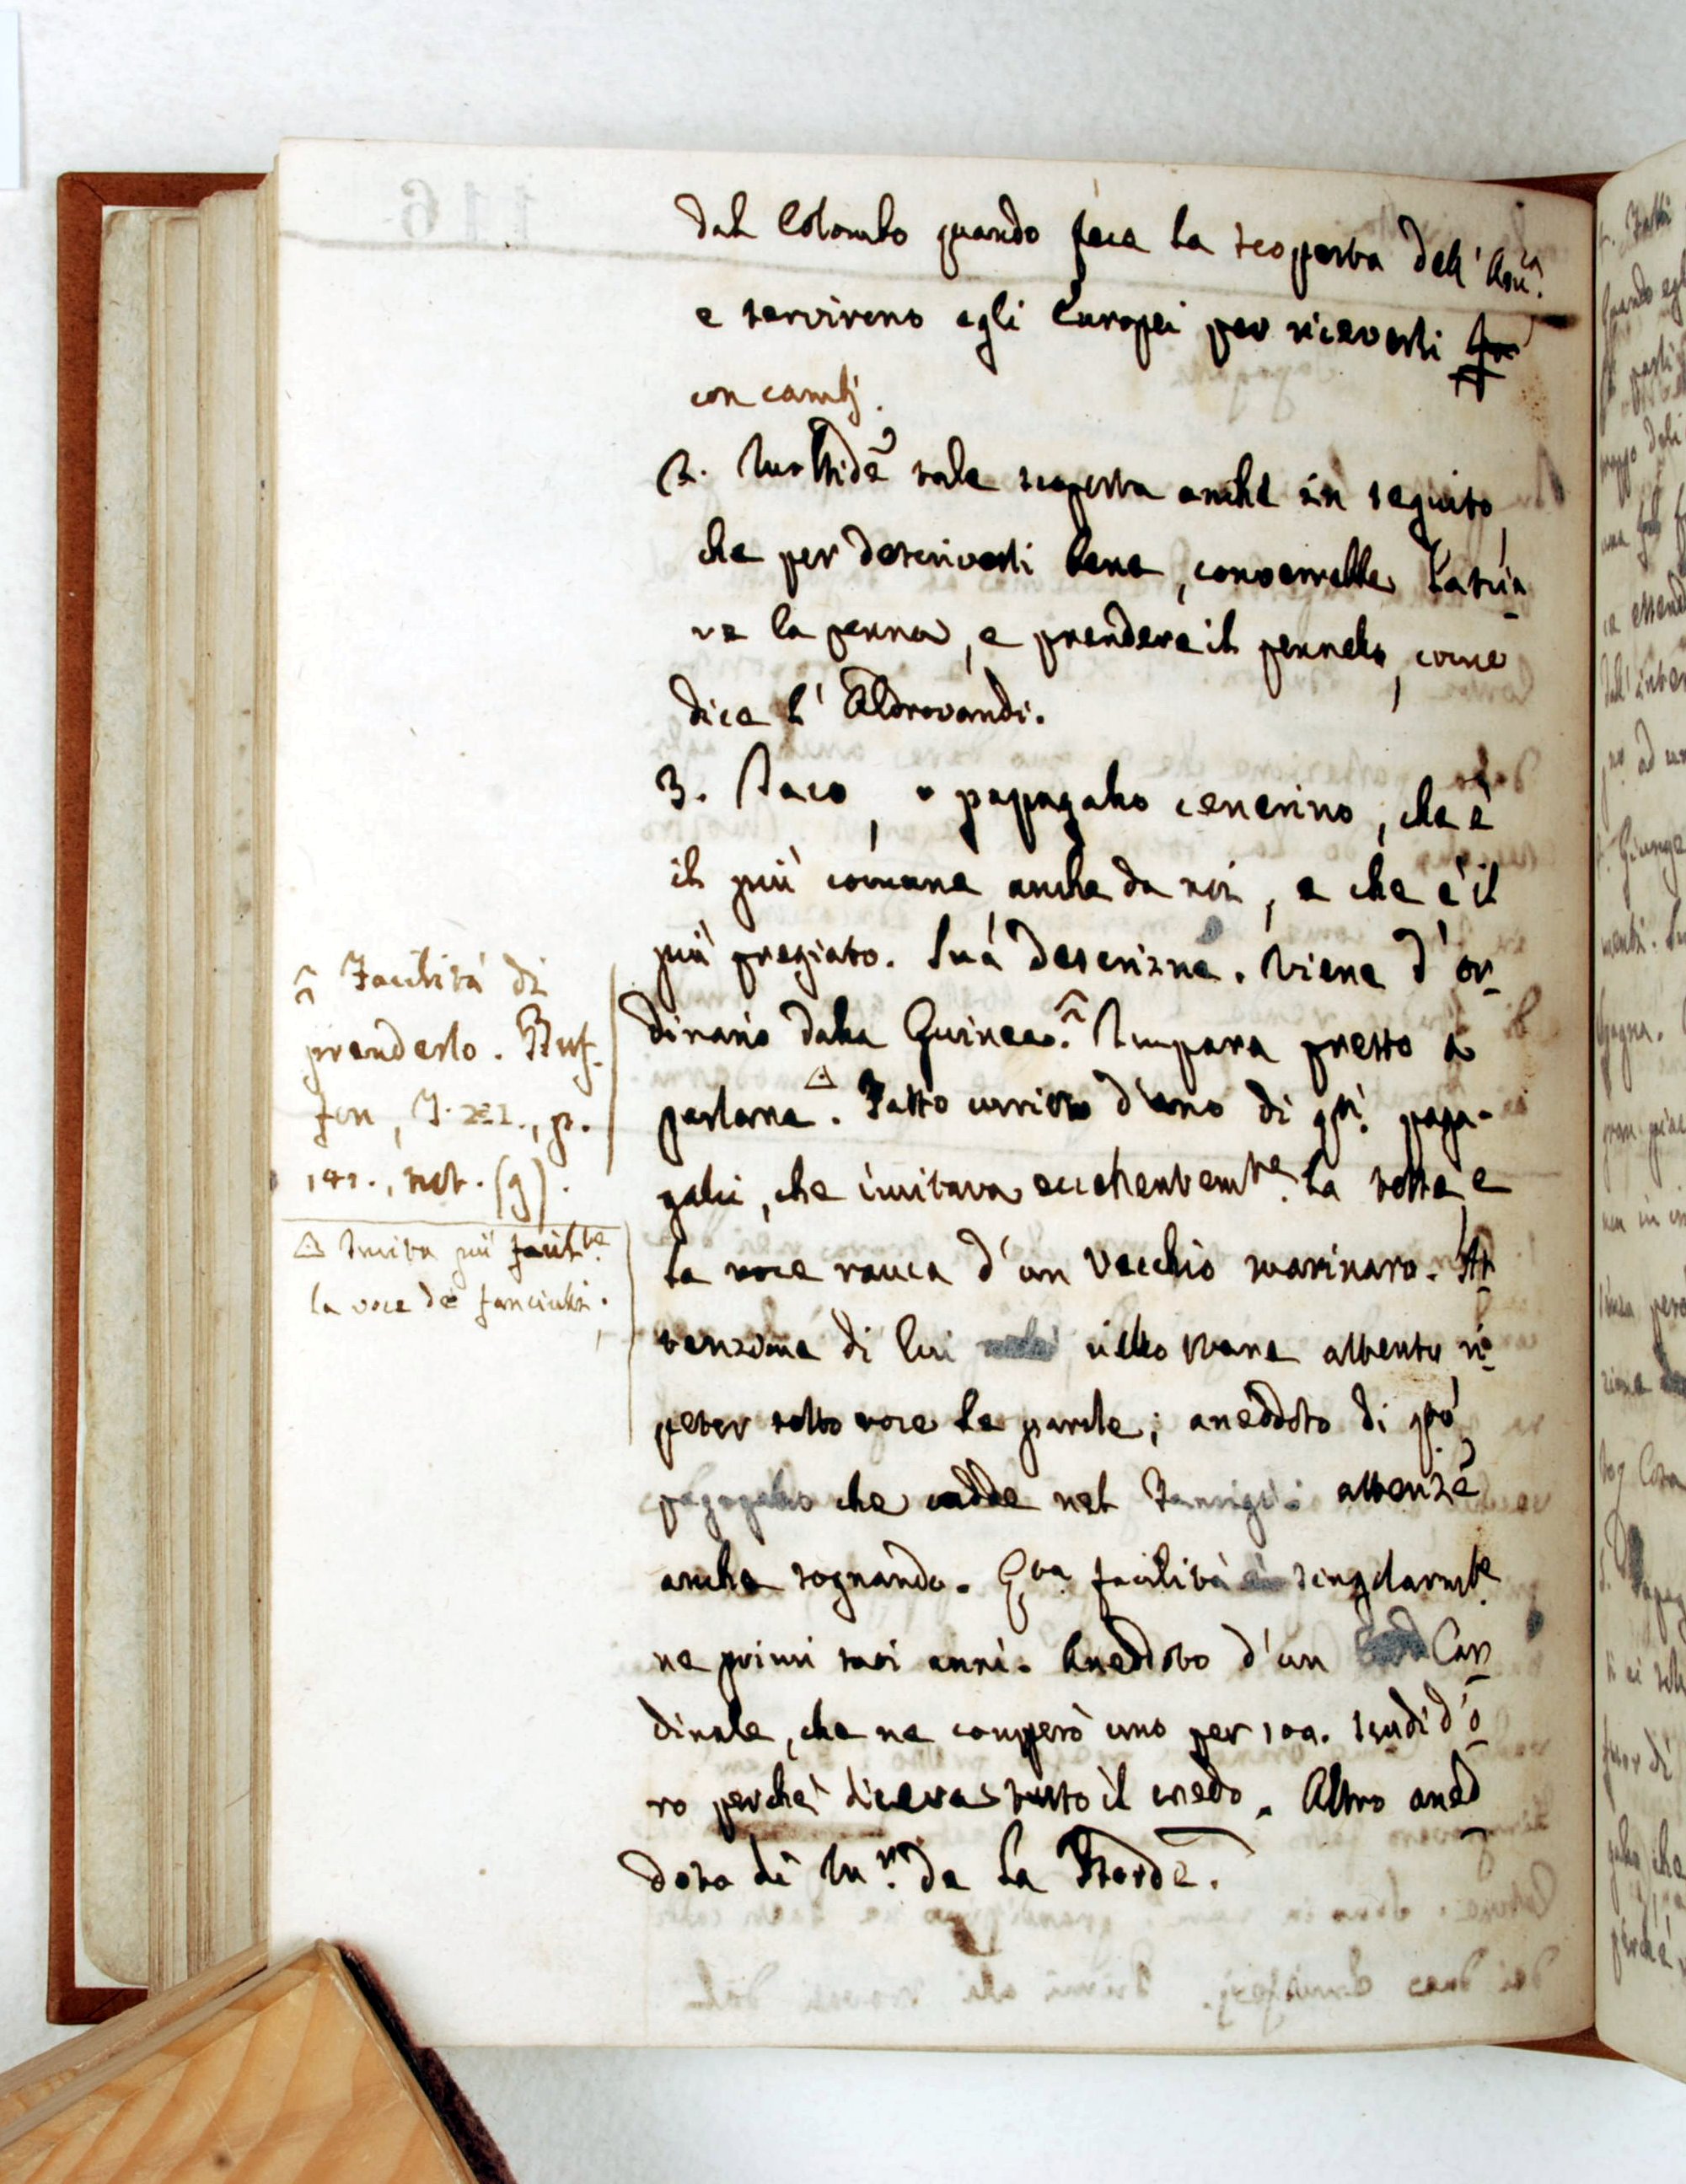 dal Colombo quando fece la scoperta dell' Am.ca
e servirono agli Europei per riceverli
con cambj.
2. Moltitud.e tale scoperta anche in seguito,
che per descriverli bene, converrebbe lascia-
re la penna, e prendere il pennello, come
dice l' Aldrovandi.
3. Jaco, o papagallo cenerino, che è
il più comune anche da noi, e che è il
più pregiato. Sua descrizne. Viene d'or-
dinario dalla Guinea. ^ Impara presto a
parlarne. △ Fatto curioso d'uno di qsti papa-
galli, che imitava eccelentemte la tosse, e
la voce rauca d'un vecchio marinaro. At-
tenzione di lui nello stare attento, ri-
peter sotto voce le parole; aneddoto di qto
papagallo che cadde nel Tamigi: attenzne
anche sognando. Qta facilità è singolarmte
ne primi suoi anni. Aneddoto d'un Car-
dinale, che ne comperò uno per 100. scudi d'o-
ro perchè diceva tutto il credo. Altro aned-
doto di Mr. de la Borde.
^ Facilità di
prenderlo. Buf-
fon, T. XXI., p.
141., not. (g).
△ Imita più facilmte
la voce de fanciulli.